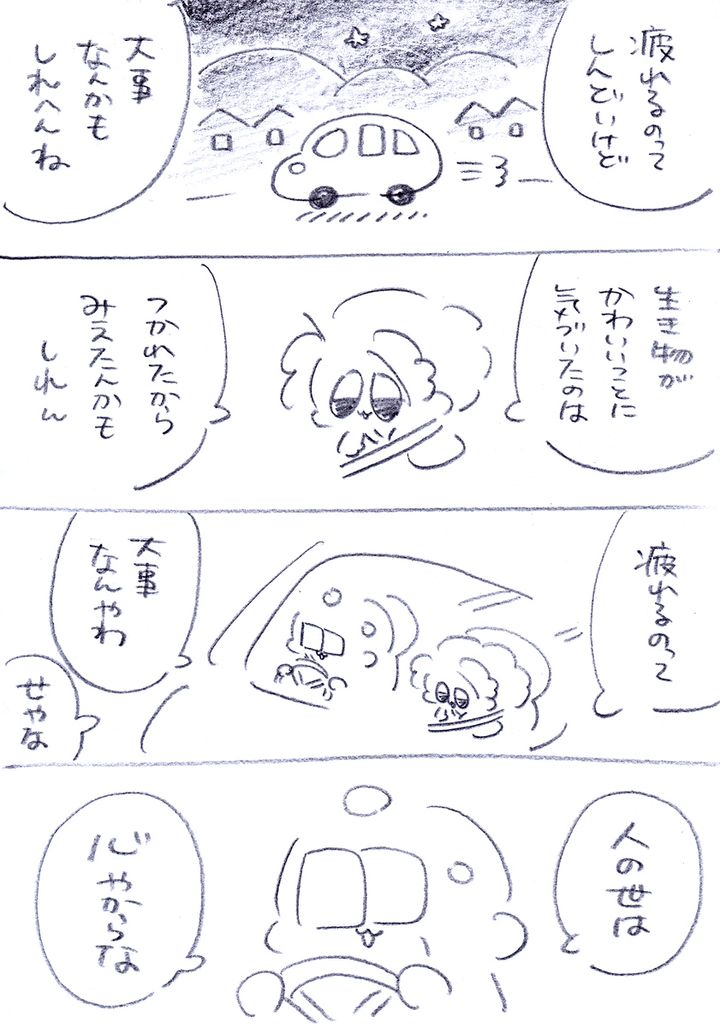 疲れるのって
しんどいけど
大事
なんかも
しれへんね
生き物が
かわいいってことに
気づいたのは
つかれたから
みえたんかも
しれん
疲れるのって
大事
なんやわ
せやな
人の世は
心やからな